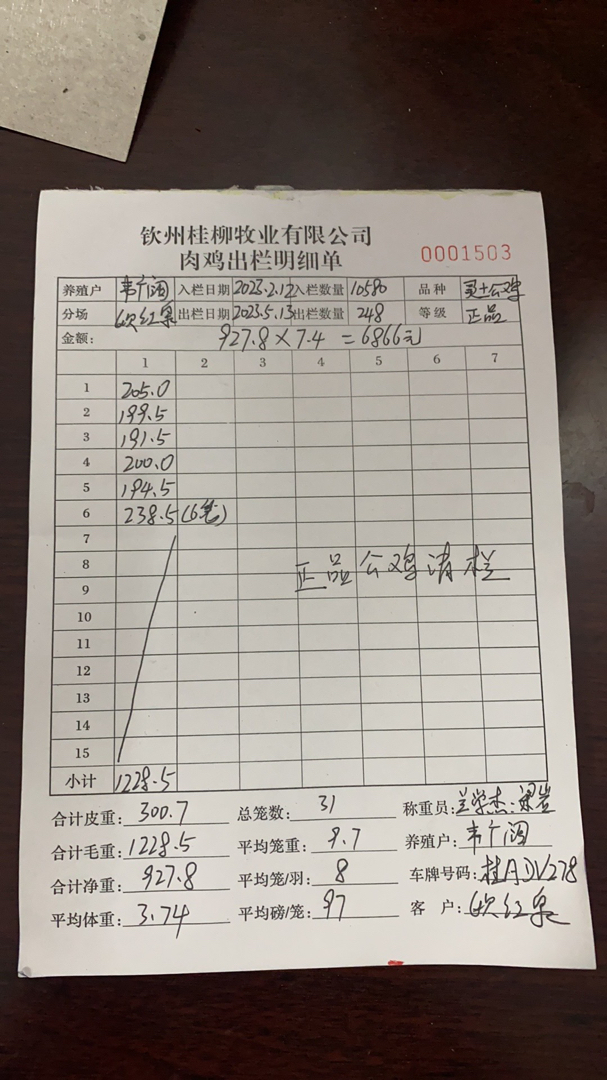 钦州桂柳牧业有限公司
肉鸡出栏明细单
0001503
养殖户 韦广阔 入栏日期 2023.2.12 入栏数量 10580 品种 灵土公鸡
分场 红泉 出栏日期 2023.5.13 出栏数量 248 等级 正品
金额: 927.8×7.4=6866元
1 2 3 4 5 6 7
1 205.0
2 199.5
3 191.5
4 200.0
5 194.5
6 238.5(6笼)
7
8 正品公鸡清栏
9
10
11
12
13
14
15
小计 1228.5
合计皮重: 300.7 总笼数: 31 称重员: 兰学杰:梁
合计毛重: 1228.5 平均笼重: 9.7 养殖户: 韦广阔
合计净重: 927.8 平均笼/羽: 8 车牌号码: 桂ADV278
平均体重: 3.74 平均磅/笼: 97 客户: 红泉